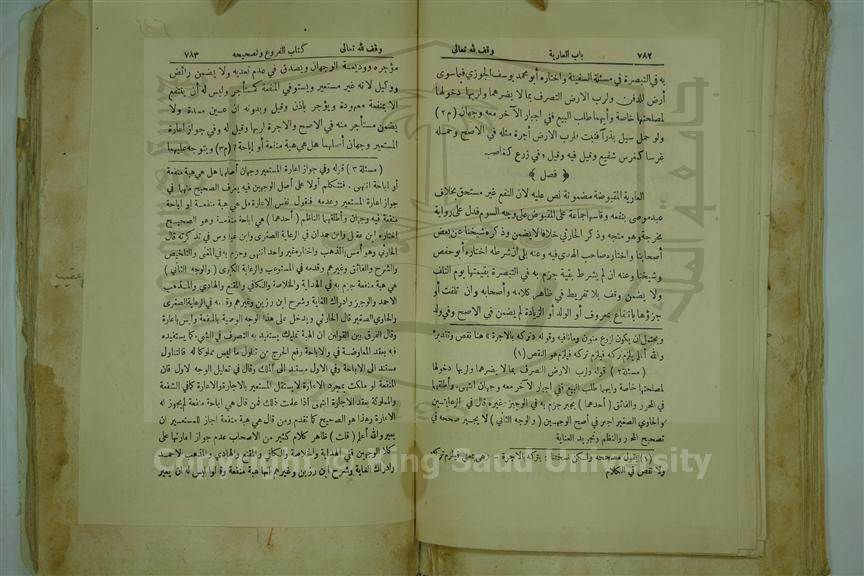 ٧٨٢ باب العارية وقف لله تعالى
به في التبصرة في مسئلة السفينة واختاره أبو محمد يوسف الجوزي فيما سوى
أرض للدفن ولرب الارض التصرف بما لا يضرهما ولربها دخولها
لمصلحتها خاصة وأيهما طلب البيع ففي اجبار الآخر معه وجهان (م ٢)
ولو حمل سيل بذراً فنبت فلرب الارض أجرة مثله في الاصح وحمله
غرسا كغرس شفيع وقيل فيه وقيل وفي زرع كغاصب
﴿ فصل ﴾
العارية المقبوضة مضمونة نص عليه لان النفع غير مستحق بخلاف
عبد موصى بنفعه وقاسها جماعة على المقبوض على وجه السوم فدل على رواية
مخرجة وهو متجه وذكر الحارثي خلافا لا يضمن وذكره شيخنا عن بعض
أصحابنا واختاره صاحب الهدى فيه وعنه بلى ان شرطه اختاره أبو حفص
وشيخنا وعنه ان لم يشرط بقية جزم به في التبصرة بقيمتها يوم التلف
ولا يضمن وقف بلا تفريط في ظاهر كلامه وأصحابه وان تلفت أو
جزؤها بانتفاع بمعروف أو الولد أو الزيادة لم يضمن في الاصح وفي ولد
ويحتمل ان يكون ازرع متون ومانافيه وقوله «تركه بالاجرة» هنا نقص وتقديره
والله أعلم يلزم تركه فيلزم تركه فيلزم هو النقص (١)
(مسئلة ٢) قوله ولرب الارض التصرف بما لا يضرهما ولربها دخولها
لمصلحتها خاصة وأيهما طلب البيع ففي اجبار الآخر معه وجهان انتهى. وأطلقهما
في المحرر والفائق (أحدهما) يجبر جزم به في الوجيز وغيره قال في الرعايتين
والحاوي الصغير اجبر في أصح الوجهين (والوجه الثاني) لا يجبر صححه في
تصحيح المحرر والنظم وتجريد العناية
(١) يقول مصححه ولكن نسختنا: بتركه بالاجرة - وهي بمعنى فيلزم تركه
ولا نقص في الكلام
وقف لله تعالى كتاب الفروع وتصحيحه ٧٨٣
مؤجره ووديعة الوجهان ويصدق في عدم تعديه ولا يضمن رائض
ووكيل لانه غير مستعير ويستوفي المنفعة كمستأجر وليس له أن ينتفع
الا بمنفعة معهودة ويؤجر باذن وقيل وبدونه ان عين مدة ولا
يضمن مستأجر منه في الاصح والاجرة لربها وقيل له وفي جواز اعارة
المستعير وجهان أصلهما هل هي هبة منفعة أو إباحة؟ (م ٣) ويتوجه عليهما
(مسئلة ٣) قوله وفي جواز اعارة المستعير وجهان أصلهما هل هي هبة منفعة
أو اباحة انتهى . فنتكلم أولا على أصل الوجهين فيه يعرف الصحيح منهما في
جواز اعارة المستعير وعدمه فنقول نفس الاعارة هل هي هبة منفعة او اباحة
منفعة فيه وجهان وأطلقهما الناظم (أحدهما) هي اباحة منفعة وهو الصحيح
اختاره ابن عقيل وابن حمدان في الرعاية الصغرى وابن عبدوس في تذكرته قال
الحارثي وهو أمس بالمذهب واختاره غير واحد انتهى وجزم به في المغني والتلخيص
والشرح والفائق وغيرهم وقدمه في المستوعب والرعاية الكبرى (والوجه الثاني)
هي هبة منفعة جزم به في الهداية والخلاصة والكافي والمقنع والهادي والمذهب
الاحمد والوجيز وادراك الغاية وشرح ابن رزين وغيرهم وقدمه في الرعاية الصغرى
والحاوي الصغير قال الحارثي ويدخل على هذا الوجه الوصية بالمنفعة وليس باعارة
وقال الفرق بين القولين ان الهبة تمليك يستفيد به التصرف في الشيء كما يستفيده
فيه بعقد المعاوضة في والاباحة رفع الحرج عن تناول ما ليس مملوكا له فالتناول
مستند الى الاباحة وفي الاول مستند الى الملك وقال في تعليل الوجه لاول فان
المنفعة لو ملكت بمجرد الاعارة لاستقل المستعير بالاجارة والاعارة كما في الشفعة
والمملوكة بعقد الاجارة انتهى اذا علمت ذلك فمن قال هي اباحة منفعة لم يجوز له
الاعارة وهذا هو الصحيح كما تقدم ومن قال هي هبة منفعة اجاز للمستعير ان
يعير والله أعلم (قلت) ظاهر كلام كثير من الاصحاب عدم جواز اعارتها على
كلا الوجهين ففي الهداية والخلاصة والكافي والمقنع والهادي والمذهب الاحمد
وادراك الغاية وشرح ابن رزين وغيرهم انها هبة منفعة وقالوا ليس له ان يعير
King Saud University